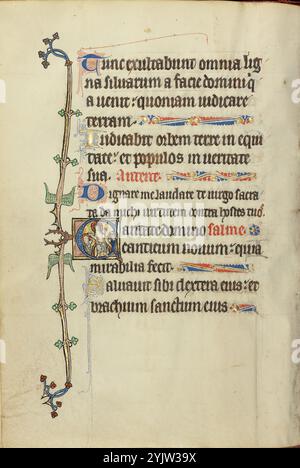 Tunc exultabunt omnia lig
na silvarum a facie domini q̄
a venit: quoniam iudicare
terram.
Iudicabit orbem terre in equi
tate: et populos in veritate
sua. Antene.
Dignare me laudare te virgo sacra
ta da michi virtutem contra hostes tuos.
Cantate domino salme
canticum novum: quia
mirabilia fecit.
Salvavit sibi dextera eius: et
brachium sanctum eius
alamy
Image ID: 2YJW39X
www.alamy.com